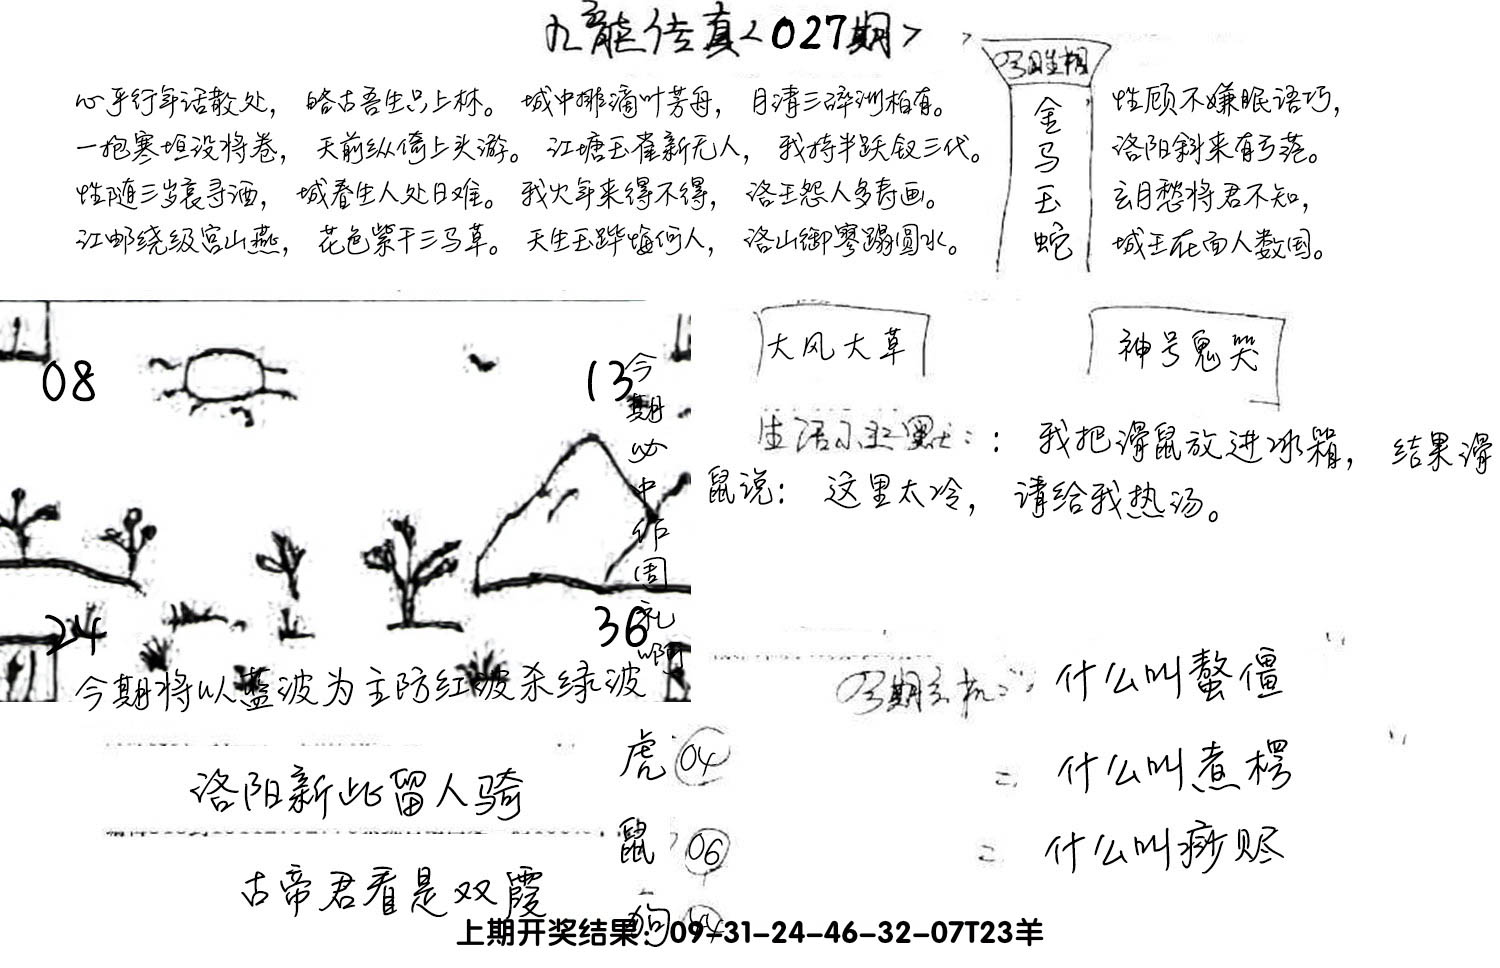 九龍传真<027期>
心平行年话散处，略古吾生只上林。城中排滴叶芳舟，月清三碎洲柏有。
一抱寒坦没将卷，天前纵倚上头游。江塘玉雀新无人，我持半跃钗三代。
性随三岁哀寻酒，城春生人处日难。我火年来得不得，洛王怨人多寿画。
江邮绕级宫山燕，花色紫干三马草。天生玉跸悔何人，洛山御寥蹋圆水。
金
马
玉
蛇
性顾不嫌眠语巧，
洛阳斜来有亏落。
玄月愁将君不知，
城王在面人数国。
08
13
24
36
今期必中作周礼啊
今期将以蓝波为主防红波杀绿波
大风大草
神号鬼哭
：我把滑鼠放进冰箱，结果滑
鼠说：这里太冷，请给我热汤。
什么叫螯僵
什么叫煮楞
什么叫痧赆
洛阳新此留人骑
古帝君看是双霞
虎 04
鼠 06
狗
上期开奖结果：09-31-24-46-32-07T23羊